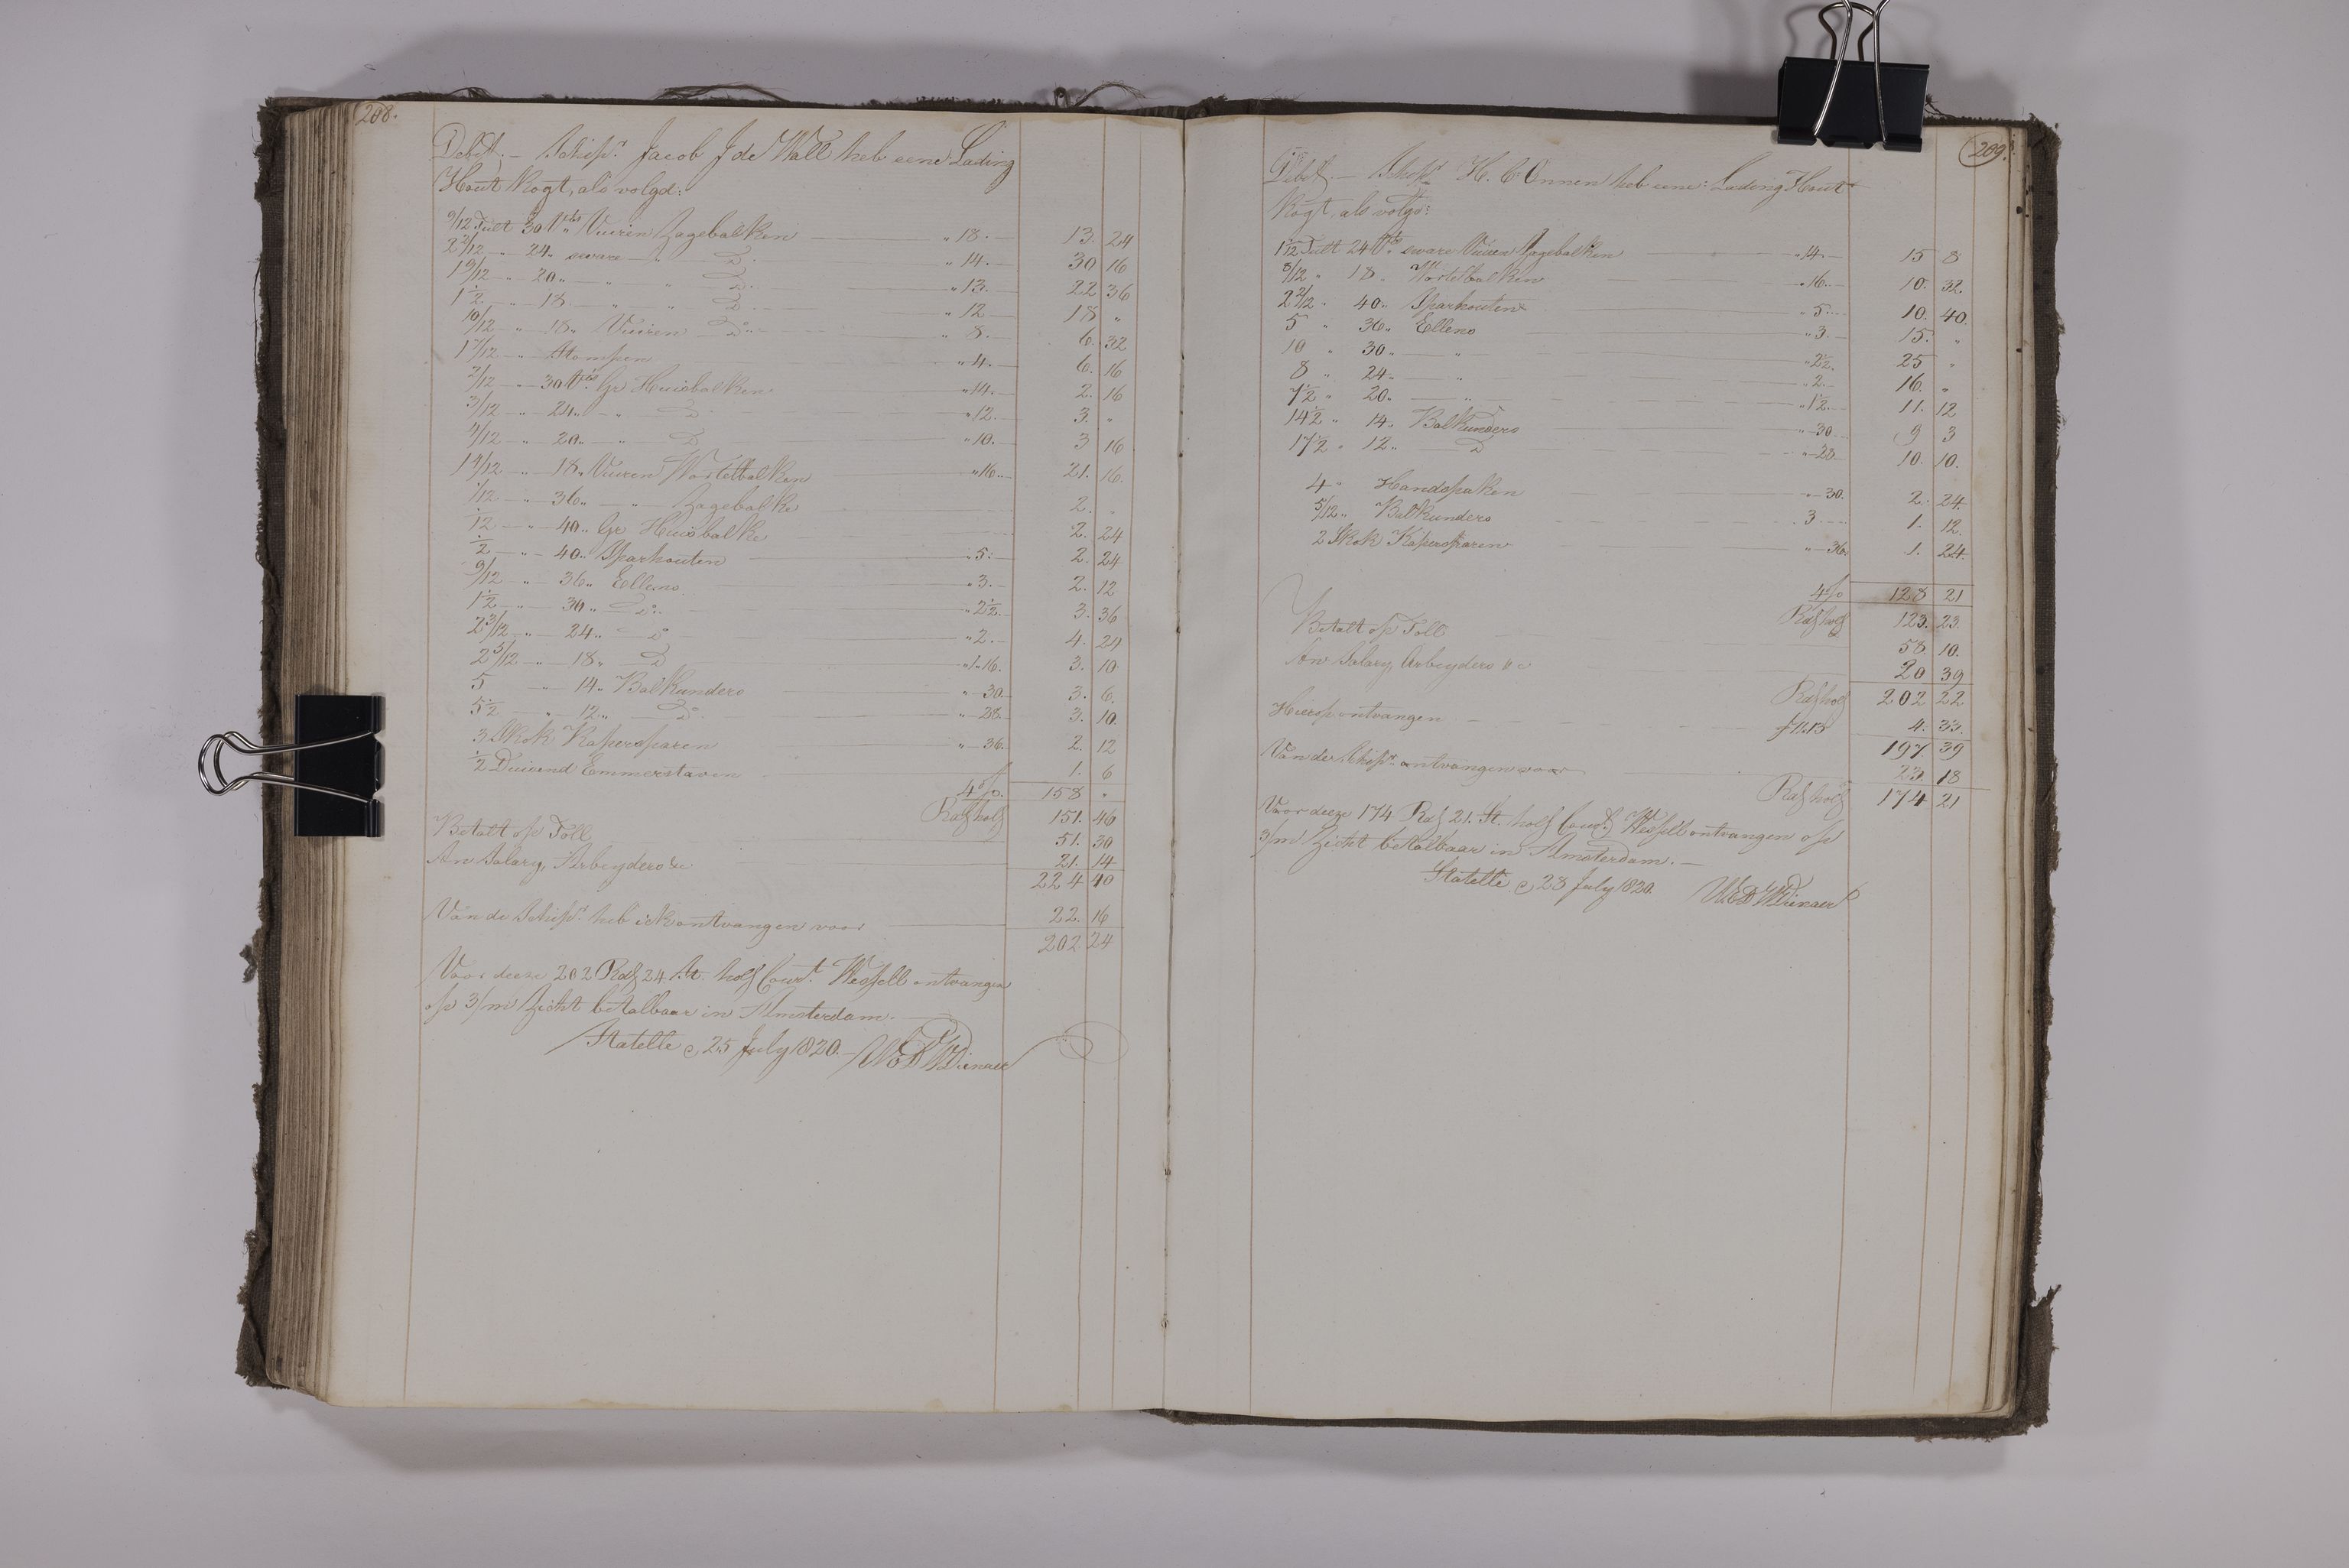 208.
Debet. — Schipr. Jacob J de Wall heb eene Lading
Hout kogt, als volgd:
9/12 Tult 30 Vts Vuuren Zagebalken — " 18. — 13. 24
2 2/12 — " — 24 " sware — " — Do. " 14. — 30 16
1 9/12 — " — 20 " — " — " — Do. " 13. — 22 36
1 1/2 — " — 18. — " — " — Do. " 12 — 18 "
10/12 — " — 18 " Vuuren Do. — " 8. — 6. 32
1 7/12 — " — Stompen — " 4. — 6. 16
2/12 — " — 30 Vts. Gr Huisbalken " 14. — 2. 16
3/12 — " — 24 " — " — Do " 12. — 3. "
4/12 — " — 20 " — " — Do " 10. — 3 16
14/12 — " — 18 " Vuuren Wortelbalken " 16 " — 21. 16.
1/12 — " — 36 " — " — Zagebalke — 2. "
1/12 — " — 40 " Gr Huisbalke — 2. 24
1/2 — " — 40 " Sparhouten " 5. 2. 24
9/12 — " — 36 " Ellens " 3. — 2. 12
1 1/2 — " — 30 " — Do. — " 2 1/2. — 3. 36
2 3/12 — " — 24 " — Do " 2. — 4. 24
2 5/12 — " — 18 " — Do " 1.16. 3. 10
5 " — 14 " Balkunders " — 30. 3. 6.
5 1/2 — " — 12 " — Do. " — 28. 3. 10.
3 Skok Kapersparen " — 36. 2. 12
1/2 Duisend Emmerstaven — 1. 6
4 p%. 158 "
Rds hols 151. 40
Betalt op Toll — 51. 30
An Salary, Arbeyders &c 21. 14
224 40
Van de Schipr. heb ick ontvangen voor — 22. 16
202. 24
Voor deese 202 Rds 24 St. hols Court. Wessell ontvangen
op 3/m Zicht betalbaar in Amsterdam. —
Statelle, 25 July 1820.
209.
Debet. — Schipr H. C Onnen heb eene: Lading Hout
kogt, als volgd:
1 1/12 Tult 24 Vts. sware Vuuren Zagebalken — " 14. 15 8
8/12 " 18. Wortelbalken — " 16. 10. 32.
2 2/12 " 40 " Sparhouten — " 5. 10. 40.
5 " 36 " Ellens — " 3. 15. "
10 " 30 " — " — " 2 1/2. 25 "
8 " 24 " — " — " 2. 16. "
7 1/2 " 20 " — " — " 1 1/2. 11. 12
14 1/2 " 14 " Balkunders — " 30. 9 3
17 1/2 " 12 " — Do " — 28. 10. 10.
4 " Handspaken — " 30. 2. 24.
5/12 " Balkunders — 3 1. 12.
2 Skok Kapersparen — " 36. 1. 24.
4 p% 128 21
Rds hols 123. 23.
Betalt op Toll — 58. 10.
An Salary, Arbeyders &c 20 39
Rds hols 202 22
Hierop ontvangen — 4. 33.
197 39
Van de Schipr. ontvangen voor — 23. 18
Rds hols 174 21
Voor deeze 174 Rds 21. St. hols Court Wessell ontvangen op
3/m Zicht betalbaar in Amsterdam. —
Statelle, 28 July 1820.